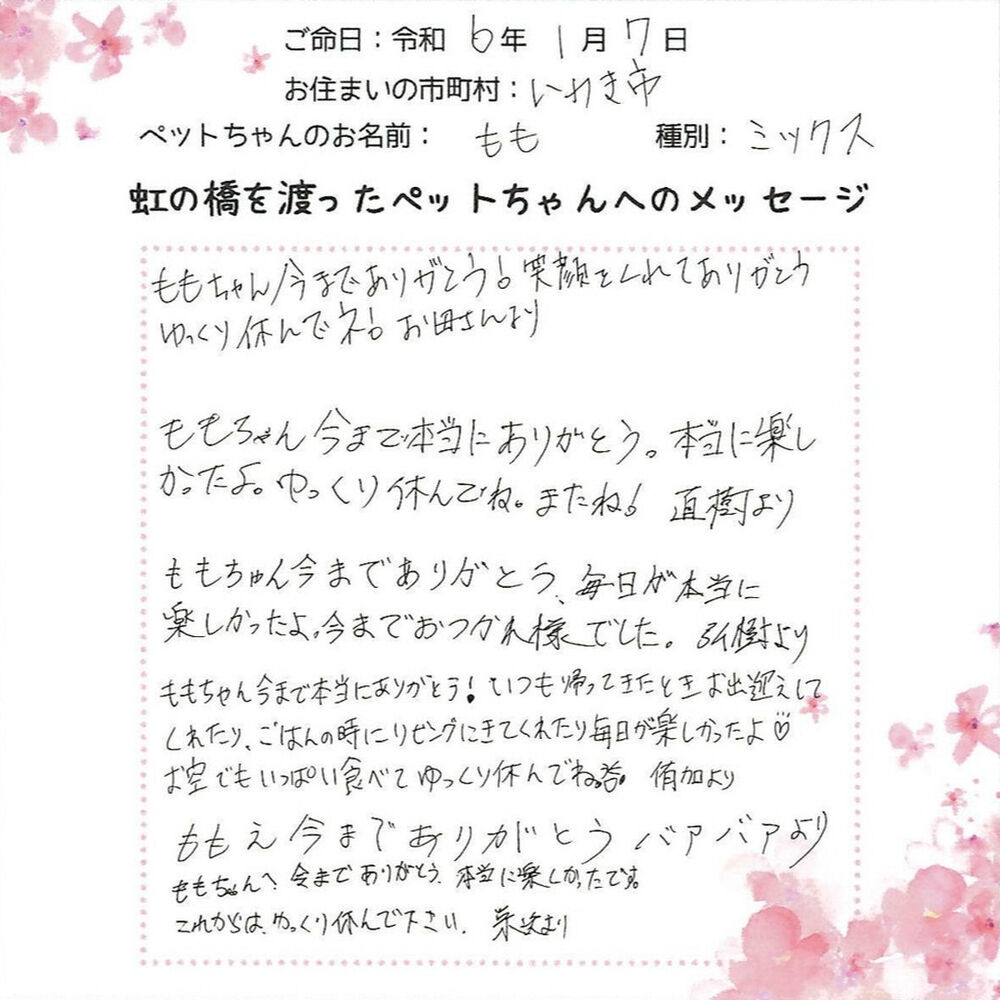 ご命日：令和 6年 1月 7日
お住まいの市町村：いわき市
ペットちゃんのお名前： もも 種別： ミックス
虹の橋を渡ったペットちゃんへのメッセージ
ももちゃん今までありがとう！笑顔をくれてありがとう
ゆっくり休んでネ！お母さんより
ももちゃん今まで本当にありがとう。本当に楽し
かったよ。ゆっくり休んでね。またね！ 直樹より
ももちゃん今までありがとう、毎日が本当に
楽しかったよ。今までおつかれ様でした。弘樹より
ももちゃん今まで本当にありがとう！いつも帰ってきたときお出迎えして
くれたり、ごはんの時にリビングにきてくれたり毎日が楽しかったよ♡
お空でもいっぱい食べてゆっくり休んでね。 侑加より
ももえ 今までありがとう バァバァより
ももちゃんへ 今までありがとう、本当に楽しかったです。
これからは、ゆっくり休んで下さい。 より